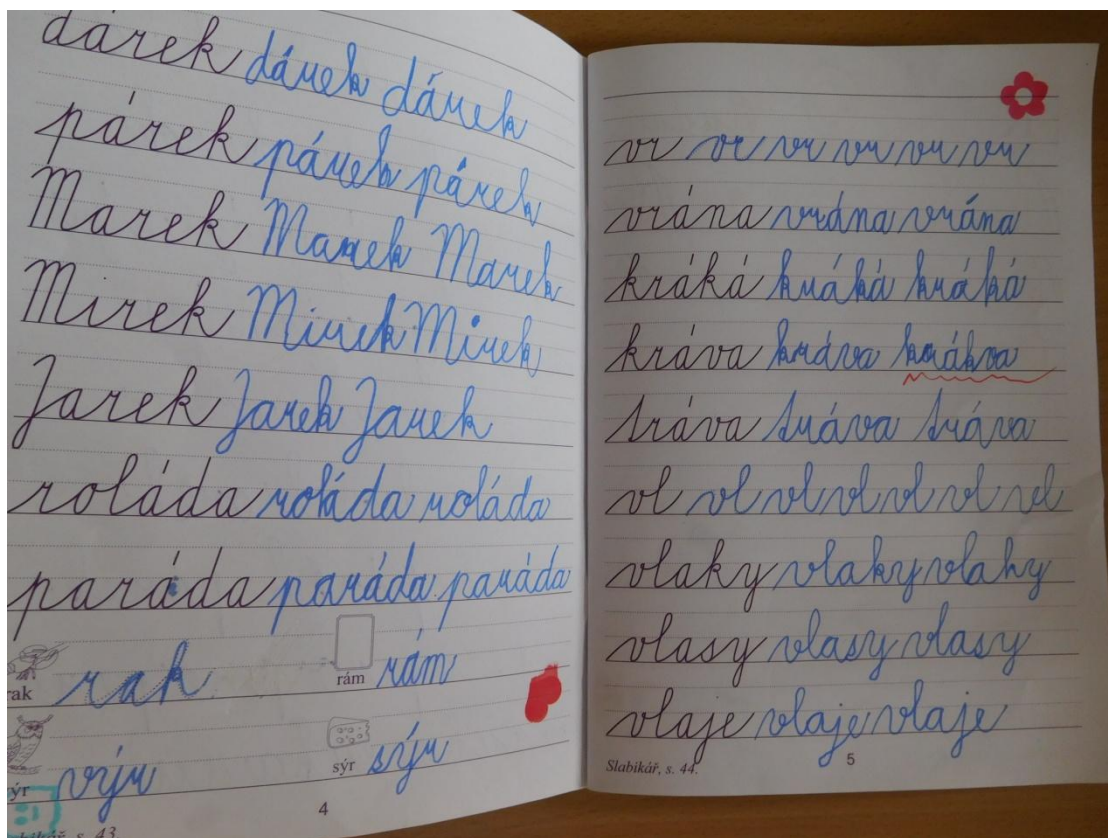 dárek dárek dárek
párek párek párek
Marek Marek Marek
Mirek Mirek Mirek
Jarek Jarek Jarek
roláda roláda roláda
paráda paráda paráda
rak rak rám rám
výr sýr sýr
4
s. 43
vr vr vr vr vr vr
vrána vrána vrána
kráká kráká kráká
kráva kráva krákva
tráva tráva tráva
vl vl vl vl vl vl vl
vlaky vlaky vlaky
vlasy vlasy vlasy
vlaje vlaje vlaje
Slabikář, s. 44.
5